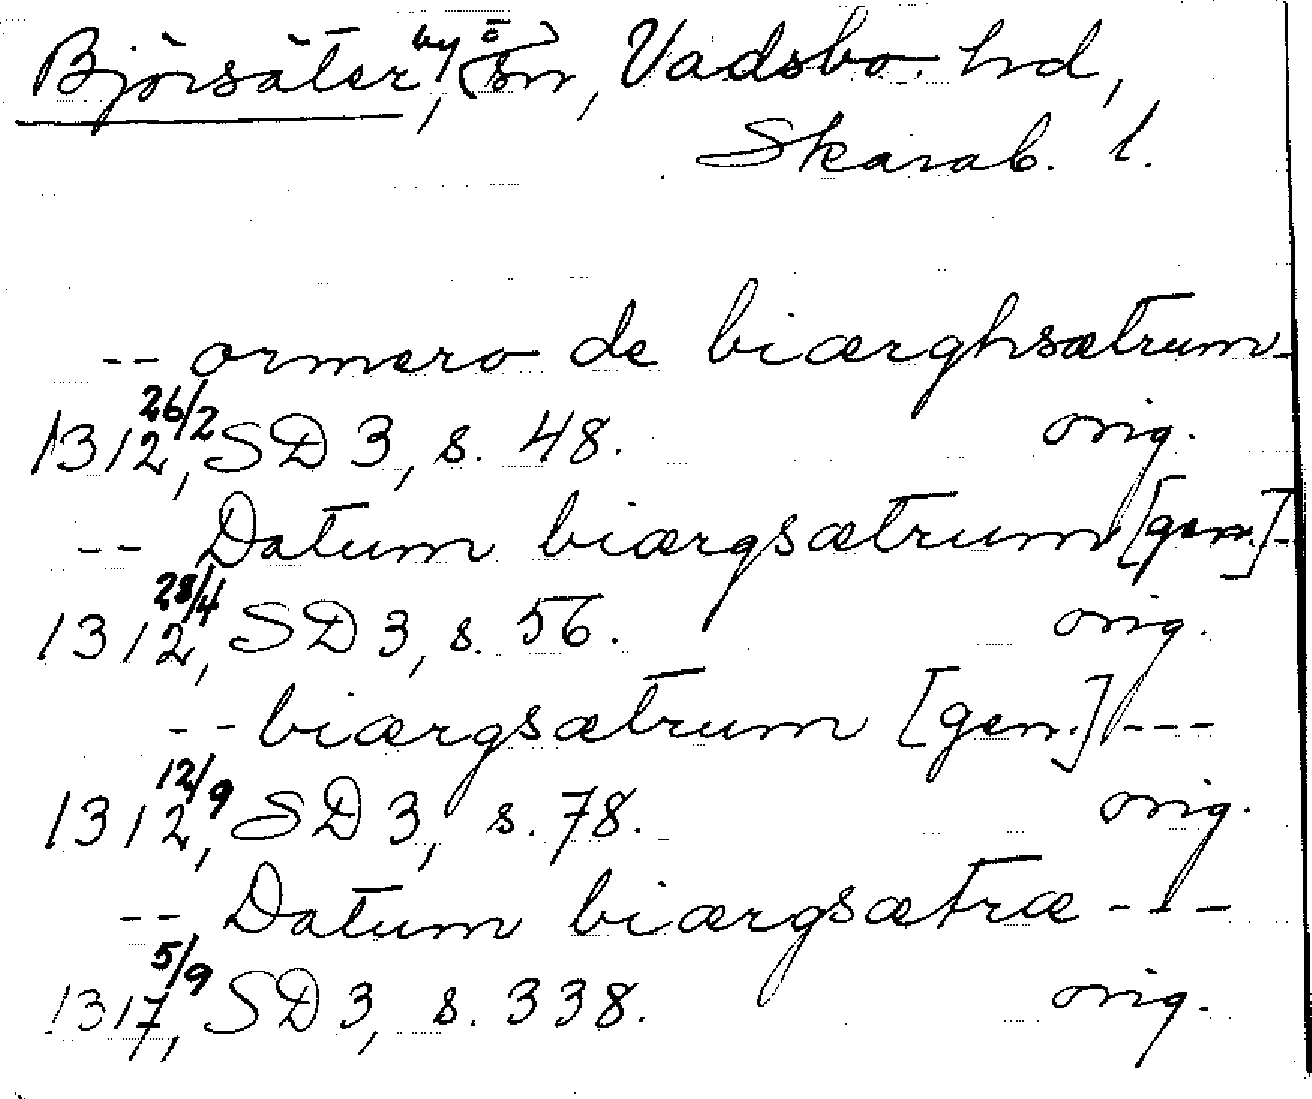 Björsäter, by ö (sn), Vadsbo hd,
Skarab. l.
-- ormero de biærghsætrum -
1312 26/2, SD 3, s. 48. orig.
-- Datum biærgsætrum [gen.] --
1312 28/4, SD 3, s. 56. orig.
-- biærgsætrum [gen.] ---
1312 12/9, SD 3, s. 78. orig.
-- Datum biærgsætræ ---
1317 5/9, SD 3, s. 338. orig.